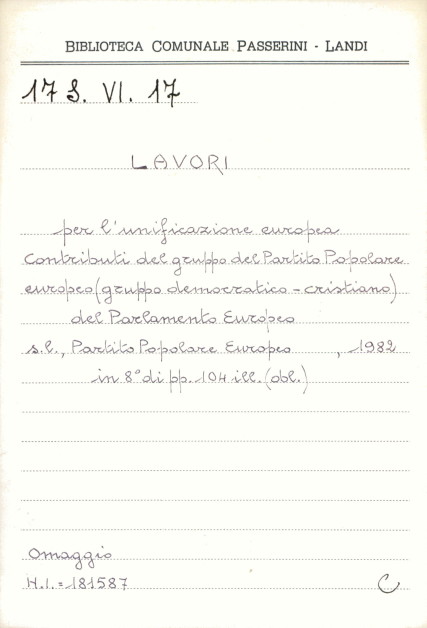 BIBLIOTECA COMUNALE PASSERINI - LANDI
17 S. VI. 17
LAVORI
per l'unificazione europea
Contributi del gruppo del Partito Popolare
europeo (gruppo democratico - cristiano)
del Parlamento Europeo
s.l., Partito Popolare Europeo , 1982
in 8° di pp. 104 ill. (obl.)
Omaggio
N.I. = 181587
C